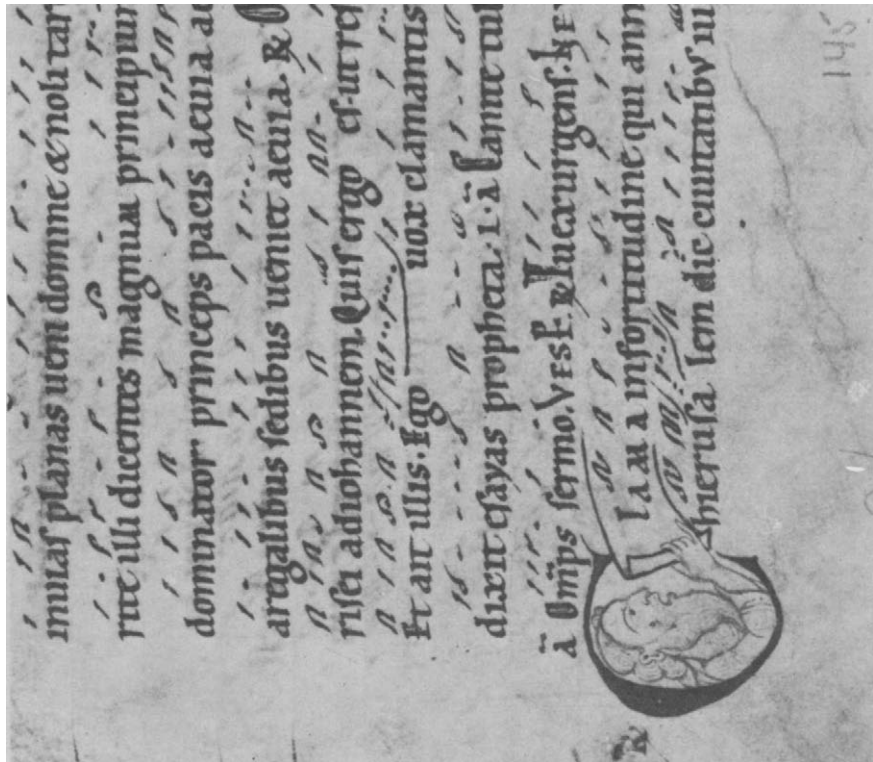 inuiaſ planas ueni domine & noli tar
rite illi dicentes magnum principium
dominator princeps pacis aeuia ae
aregalibus ſedibus ueniet aeuia. R
riſei adiohannem. Quiſ ergo eſ. ut reſ
Et ait illis. Ego uox clamantis
dixit eſayas propheta. i. ā Canite tub
ā Om̅ps ſermo. VESP. R
R CLAMA infortitudine qui ann
hieruſa lem dic ciuitatibuſ iu
145